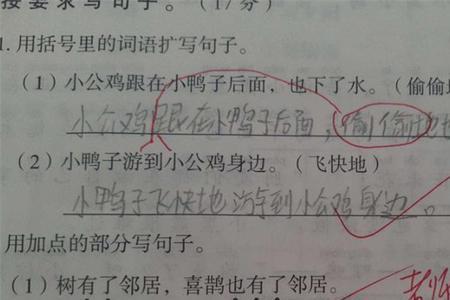 按要求写句子。(17分)
1.用括号里的词语扩写句子。
(1)小公鸡跟在小鸭子后面，也下了水。(偷偷地
小公鸡跟在小鸭子后面，偷偷地
(2)小鸭子游到小公鸡身边。(飞快地)
小鸭子飞快地游到小公鸡身边。
用加点的部分写句子。
(1)树有了邻居，喜鹊也有了邻居。